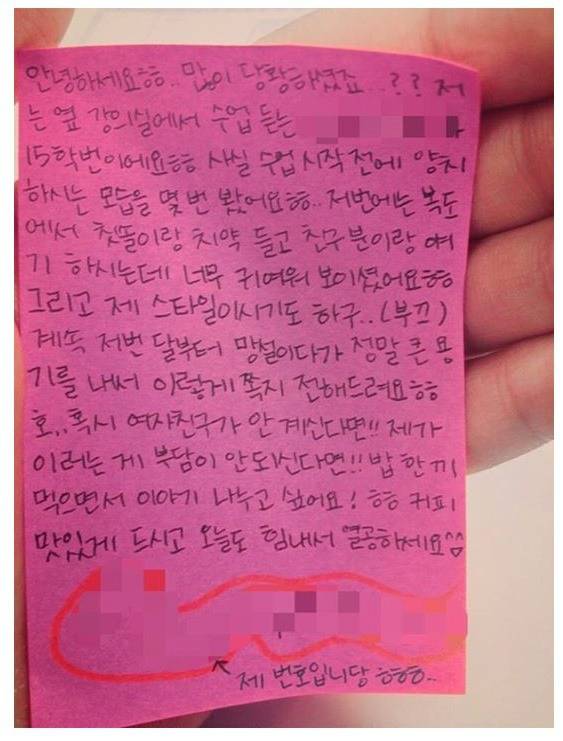 안녕하세요ㅎㅎ.. 많이 당황하셨죠...?? 저
는 옆 강의실에서 수업 듣는
15학번이에요ㅎㅎ 사실 수업 시작 전에 양치
하시는 모습을 몇 번 봤어요ㅎㅎ.. 저번에는 복도
에서 칫똘이랑 치약 들고 친구분이랑 얘
기 하시는데 너무 귀여워 보이셨어요ㅎㅎ
그리고 제 스타일이시기도 하구..(부끄)
계속 저번 달부터 망설이다가 정말 큰 용
기를 내서 이렇게 쪽지 전해드려요ㅎㅎ
호,,혹시 여자친구가 안 계신다면!! 제가
이러는 게 부담이 안되신다면!! 밥 한끼
먹으면서 이야기 나누고 싶어요! ㅎㅎ 커피
맛있게 드시고 오늘도 힘내서 열공하세요^^
↖ 제 번호입니당 ㅎㅎㅎ..